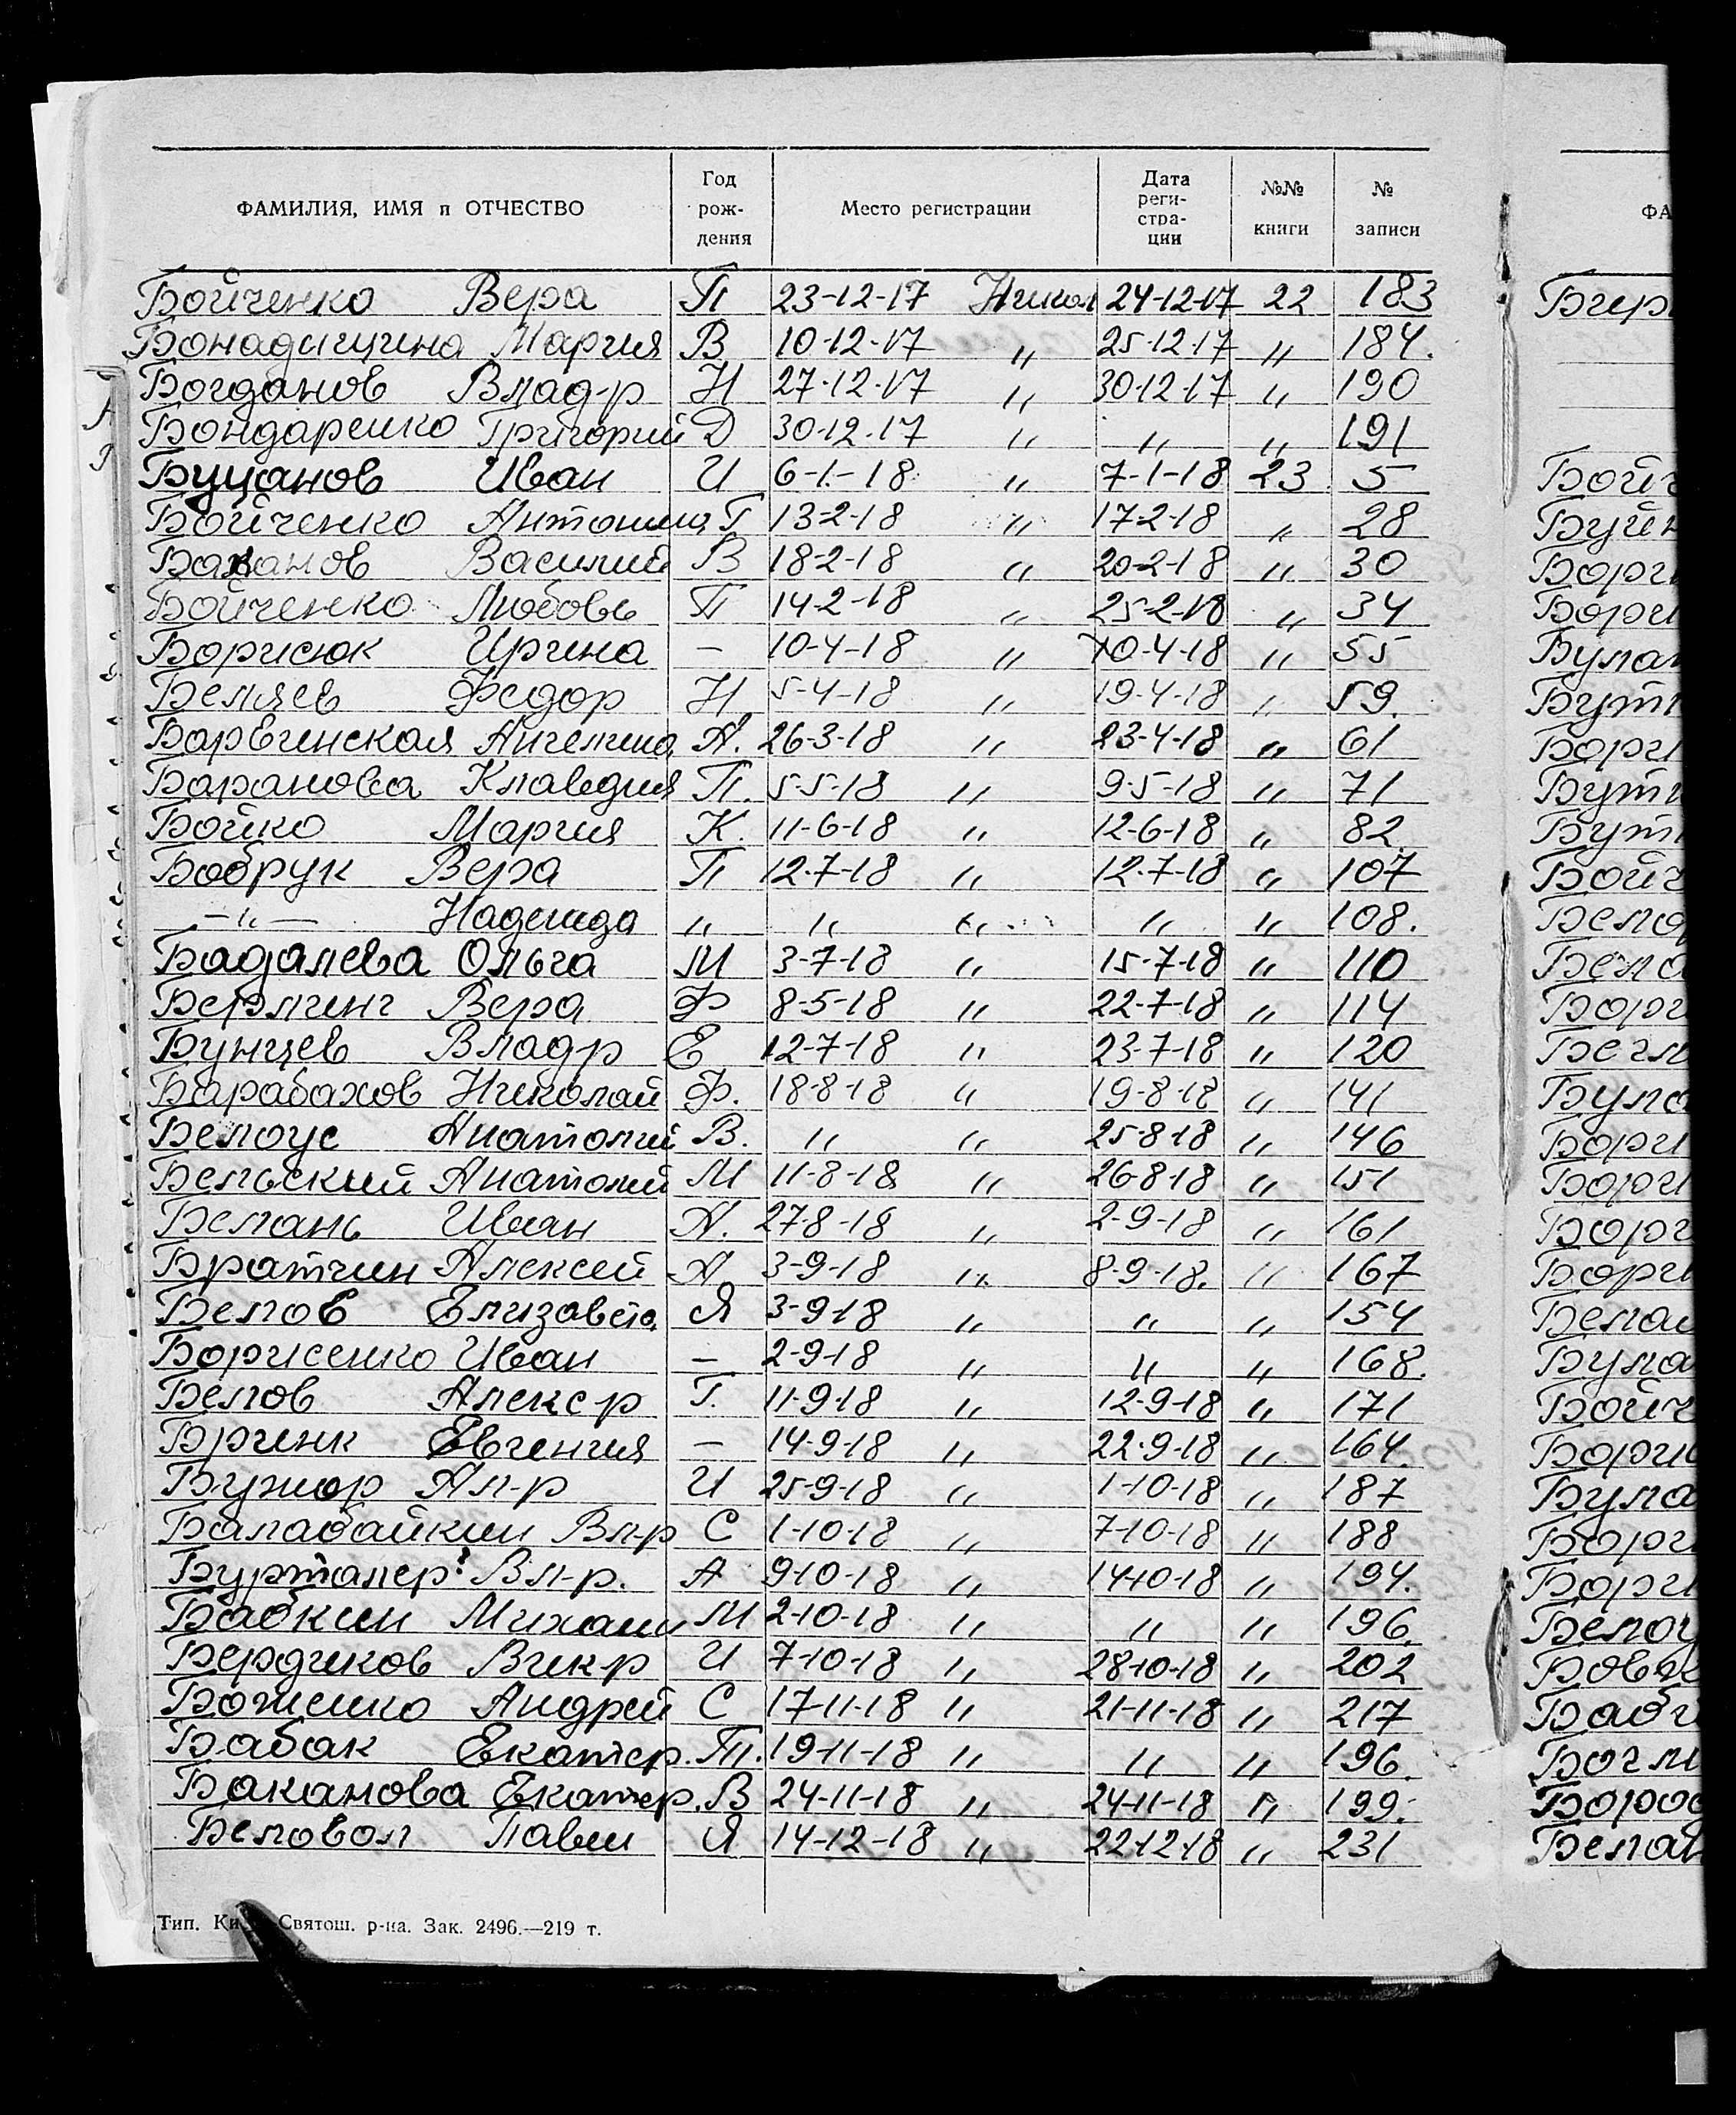 ФАМИЛИЯ, ИМЯ и ОТЧЕСТВО Год рож-дения Место регистрации Дата реги-стра-ции №№ книги № записи ФА
Бойченко Вера П 23-12-17 Никол 24-12-17 22 183
Мария В 10-12-17 " 25-12-17 " 184.
Богданов Влад-р Н 27-12-17 " 30-12-17 " 190
Бондаренко Григорий Д 30-12-17 " " " 191
Буцанов Иван И 6-1-18 " 7-1-18 23 5
Бойченко Антонина Г 13-2-18 " 17-2-18 " 28
Баканов Василий В 18-2-18 " 20-2-18 " 30
Бойченко Любовь П 14-2-18 " 25-2-18 " 34
Борисюк Ирина — 10-4-18 " 10-4-18 " 55
Беляев Федор Н 5-4-18 " 19-4-18 " 59.
Барвинская Ангелина А. 26-3-18 " 23-4-18 " 61
Баранова Клавдия П. 5-5-18 " 9-5-18 " 71
Бойко Мария К. 11-6-18 " 12-6-18 " 82.
Бобрук Вера П 12-7-18 " 12-7-18 " 107
—"— Надежда " " " " " 108.
Бадалева Ольга М 3-7-18 " 15-7-18 " 110
Берлинг Вера Ф 8-5-18 " 22-7-18 " 114
Бунцев Влад-р Е 12-7-18 " 23-7-18 " 120
Барабахов Николай Ф. 18-8-18 " 19-8-18 " 141
Белоус Анатолий В. " " 25-8-18 " 146
Бельский Анатолий М 11-8-18 " 26-8-18 " 151
Белань Иван А. 27-8-18 " 2-9-18 " 161
Братчин Алексей А 3-9-18 " 8-9-18. " 167
Белов Елизавета Я 3-9-18 " " " 154
Борисенко Иван — 2-9-18 " " " 168.
Белов Алекс-р Г. 11-9-18 " 12-9-18 " 171
Бринк Евгения — 14-9-18 " 22-9-18 " 164.
Бужор Ал-р И 25-9-18 " 1-10-18 " 187
Балабайкин Вл-р С 1-10-18 " 7-10-18 " 188
Бурталер? Вл-р. А 9-10-18 " 14-10-18 " 194.
Бабкин Михаил М 2-10-18 " " " 196.
Бердиков Вик-р И 7-10-18 " 28-10-18 " 202
Боженко Андрей С 17-11-18 " 21-11-18 " 217
Бабак Екатер. П. 19-11-18 " " " 196.
Баканова Екатер. В 24-11-18 " 24-11-18 " 199.
Беловол Павел Я 14-12-18 " 22-12-18 " 231
Тип. Ки Святош. р-на. Зак. 2496.—219 т.